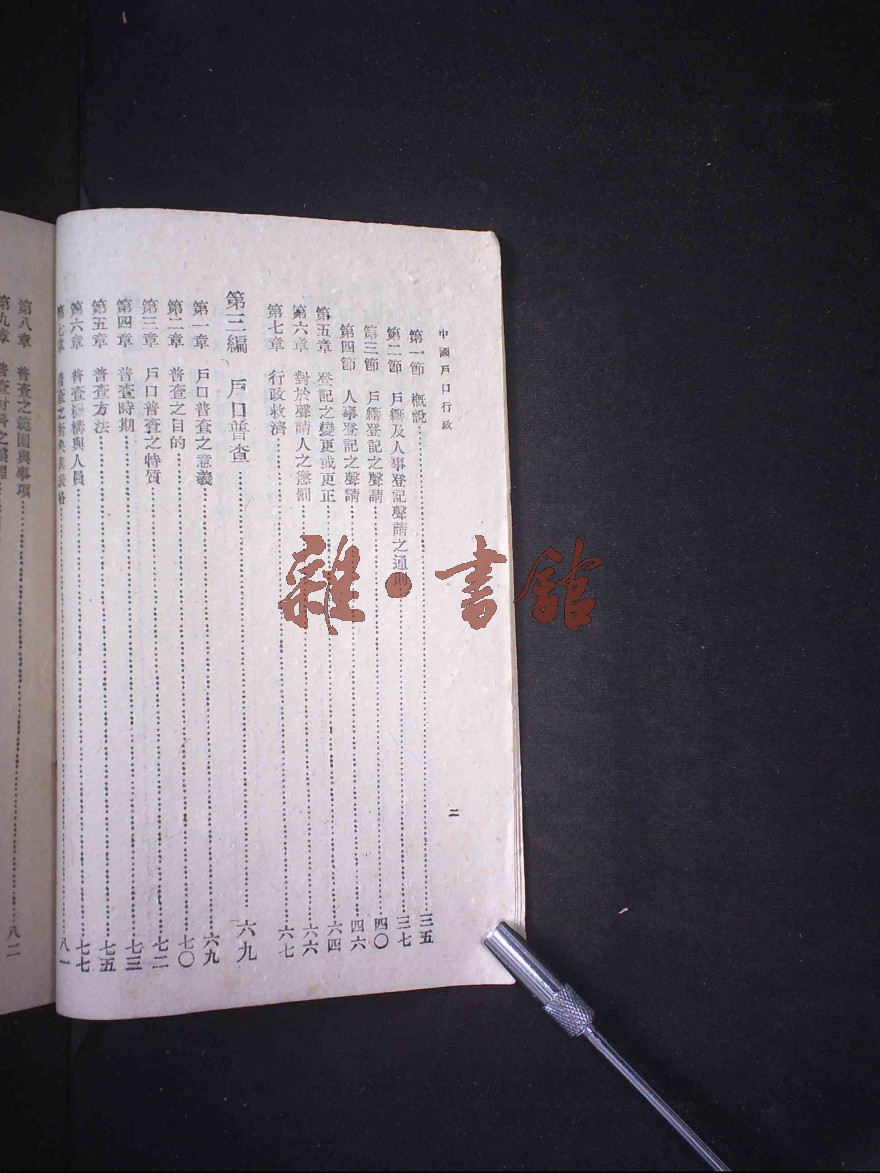 中國戶口行政
二
第一節 概說……三五
第二節 戶籍及人事登記聲請之通則……三七
第三節 戶籍登記之聲請……四〇
第四節 人事登記之聲請……四六
第五章 登記之變更或更正……六四
第六章 對於聲請人之懲罰……六六
第七章 行政救濟……六七
第三編 戶口普查……六九
第一章 戶口普查之意義……六九
第二章 普查之目的……七〇
第三章 戶口普查之特質……七二
第四章 普查時期……七三
第五章 普查方法……七五
第六章 普查機構與人員……七七
第七章 普查之……八一
第八章 普查之範圍與事項……八二
第九章 普查
雜·書館